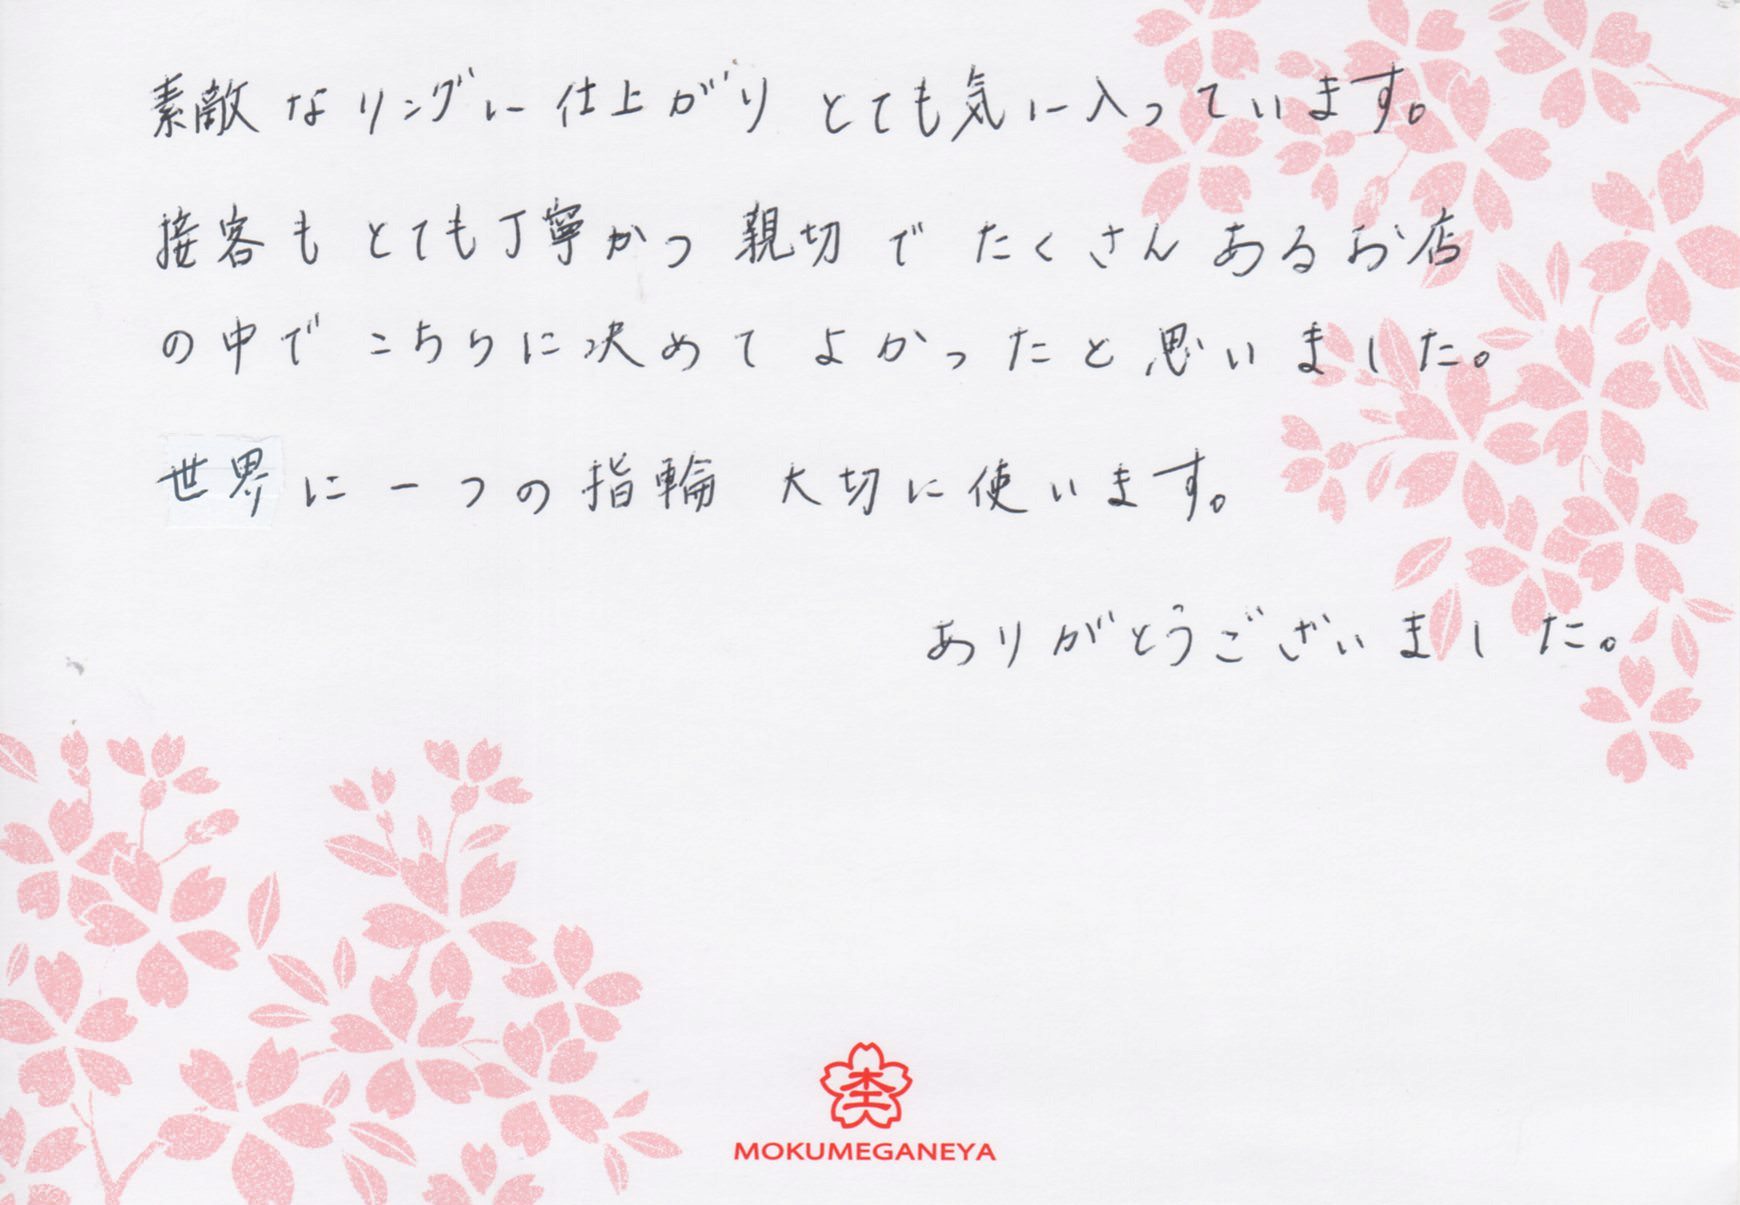 素敵なリングに仕上がり とても気に入っています。
接客も とても丁寧かつ 親切で たくさん あるお店
の中で こちらに決めて よかったと思いました。
世界に一つの指輪 大切に使います。
ありがとうございました。
MOKUMEGANEYA